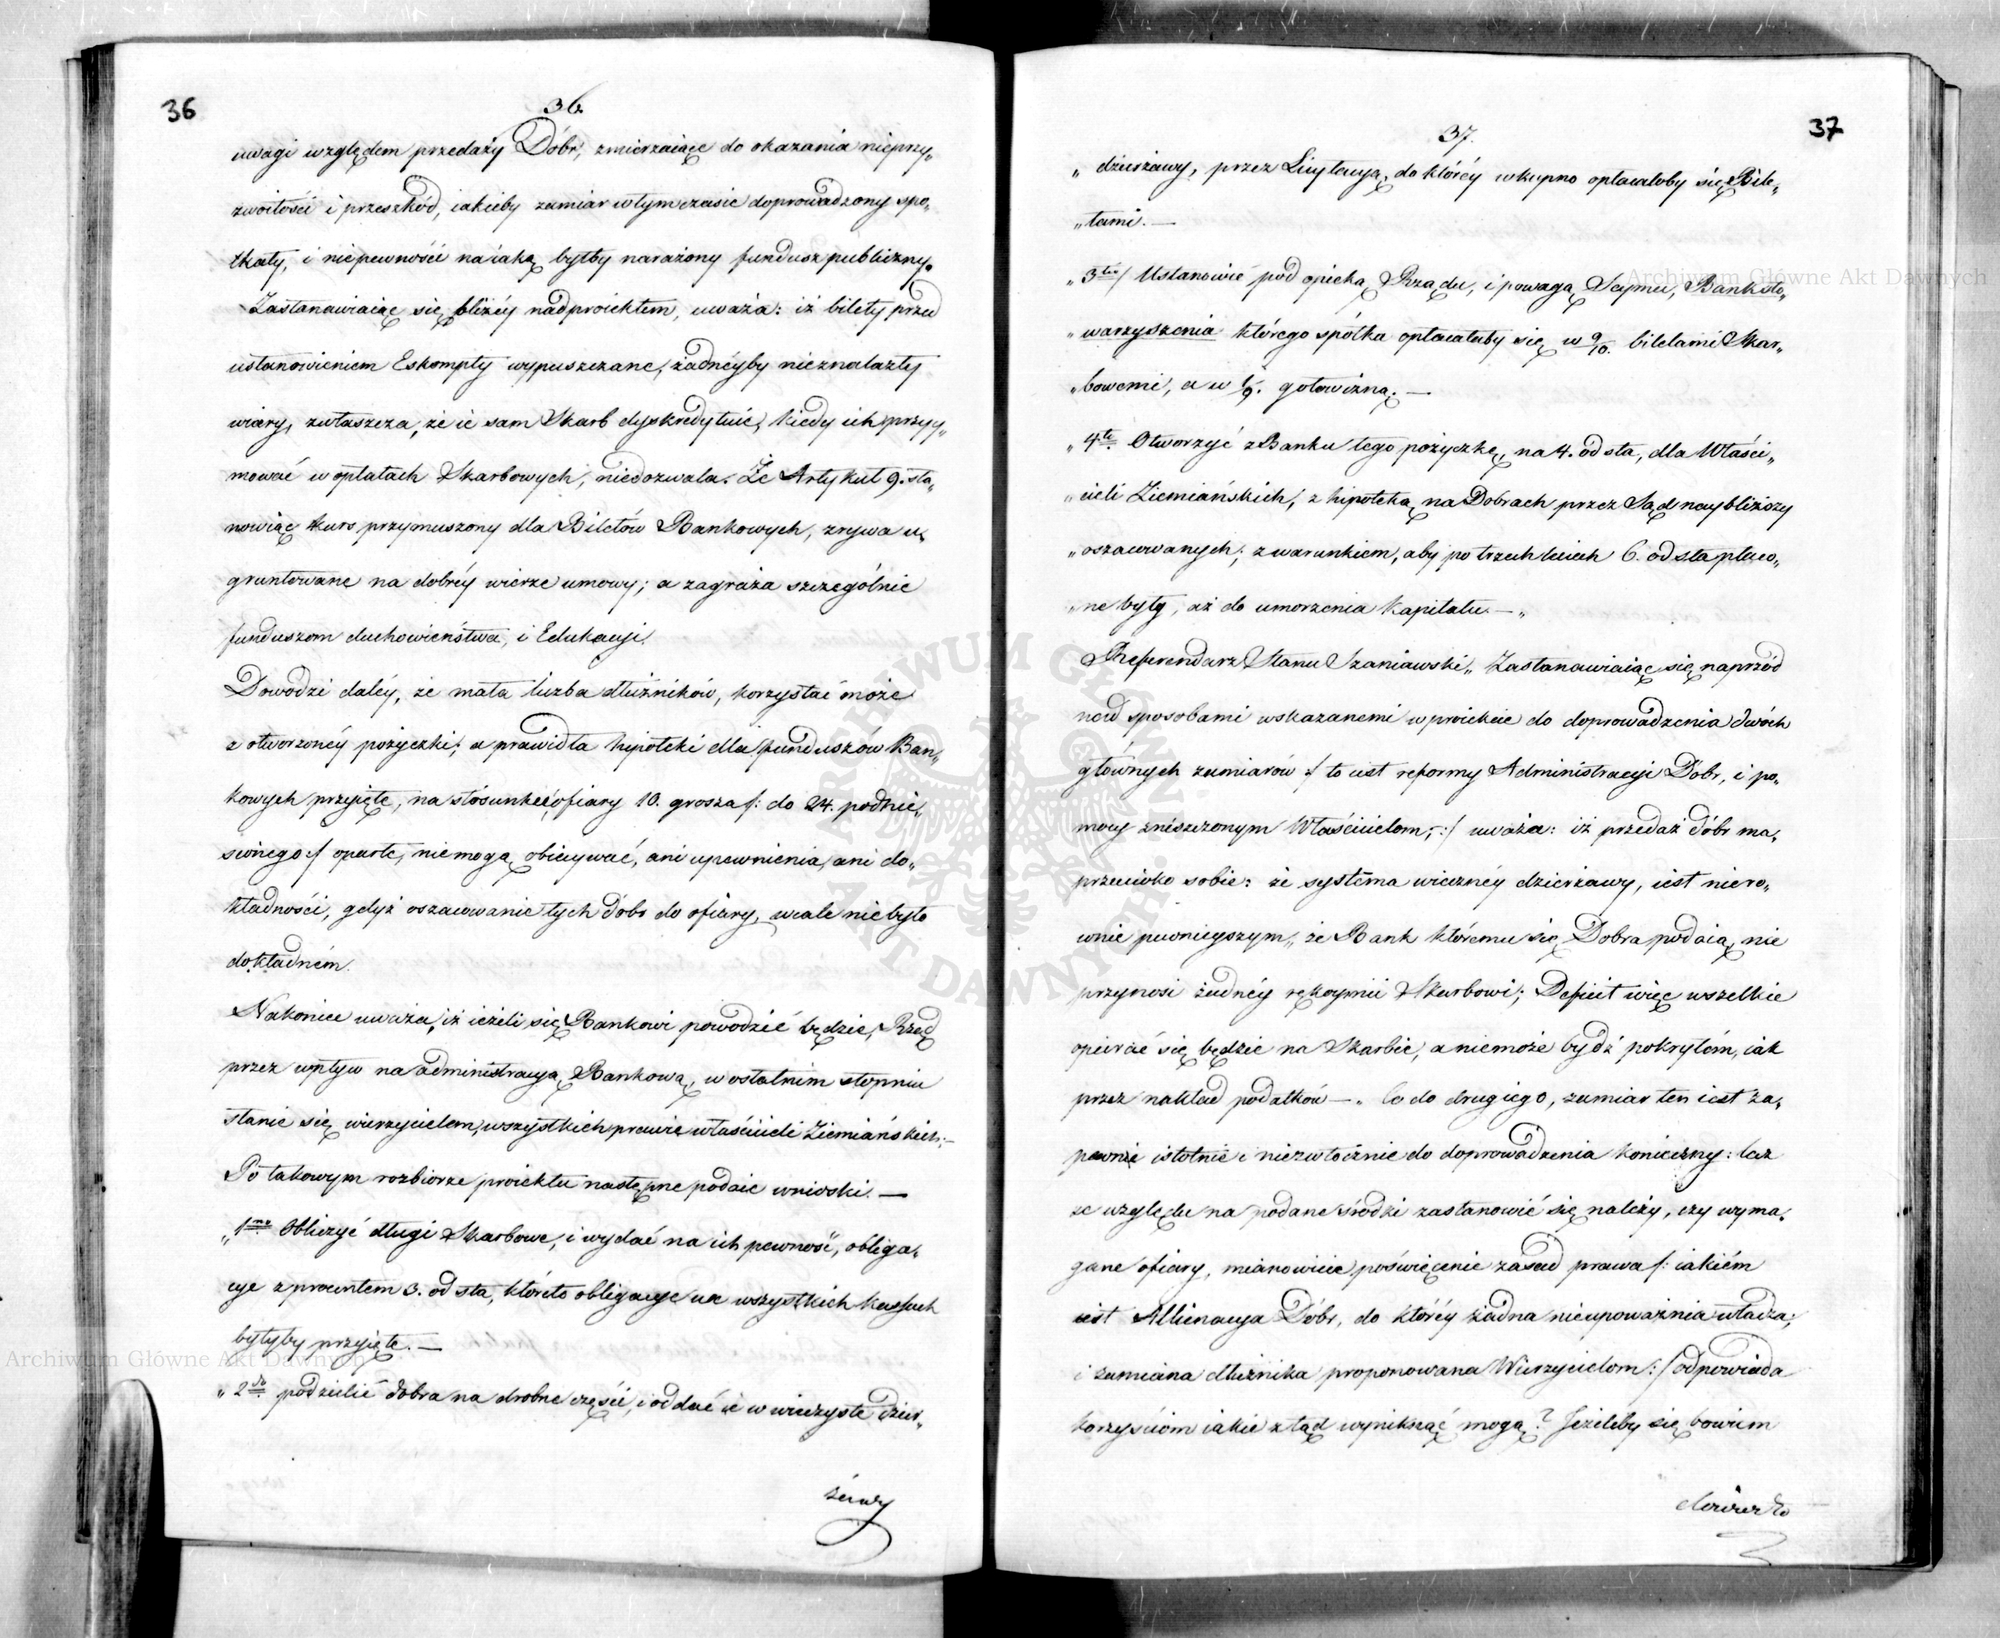 36
36.
uwagi względem przedaży Dóbr, zmierzaiące do okazania nieprzy„
zwoitości i przeszkód, iakieby zamiar w tym czasie doprowadzony spo„
tkały, i niepewność na iaką byłby narażony fundusz publiczny.
Zastanawiaiąc się bliżéy nad proiektem, uważa: iż bilety przed
ustanowieniem Eskompty wypuszczane, żadnéyby nieznalazły
wiary, zwłaszcza, że ie sam Skarb dyskredytuie, kiedy ich przyy„
mować w opłatach Skarbowych, niedozwala. Że Artykuł 9. sta„
nowiąc kurs przymuszony dla Biletów Bankowych, zrywa u„
gruntowane na dobréy wierze umowy; a zagraża szczególnie
funduszom duchowieństwa, i Edukacyi.
Dowodzi daléy, że mała liczba dłużników, korzystać może
z otworzonéy pożyczki; a prawidła hypoteki dla funduszów Ban„
kowych przyięte, na stosunku ofiary 10. grosza /: do 24. podnie„
sionego :/ oparte, niemogą obiecywać, ani upewnienia, ani do„
kładności, gdyż oszacowanie tych dóbr do ofiary, wcale niebyło
dokładném.
Nakoniec uważa, iż ieżeli się Bankowi powodzić będzie, Rząd
przez wpływ na administracyą Bankową, w ostatnim stopniu
stanie się wierzycielem, wszystkich prawie właścicieli Ziemiańskich.—
Po takowym rozbiorze proiektu następne podaie wnioski. —
„1mo Obliczyć długi Skarbowe, i wydać na ich pewność, obliga„
cye z procentem 3. od sta, któreto obligacye na wszystkich kassach
byłyby przyięte. —
„2do podzielić dobra na drobne części, i oddać ie w wieczyste dzier„
żawy
37
37.
„dzierżawy, przez Licytacyą, do któréy wkupno opłacałoby się Bile„
„tami. —
„3tio/ Ustanowić pod opieką Rządu, i powagą Seymu, Bank sto„
„warzyszenia którego spółka opłacałaby się w 9/10. biletami Skar„
„bowemi, a w 1/9. gotowizną. —
„4to Otworzyć z Banku tego pożyczkę, na 4. od sta, dla Właści„
„cieli Ziemiańskich, z hipoteką na Dobrach przez Sąd naybliższy
„oszacowanych; z warunkiem, aby po trzech leciech 6. od sta płaco„
„ne były, aż do umorzenia kapitału. — „
Referendarz Stanu Szaniawski „ Zastanawiaiąc się naprzód
nad sposobami wskazanemi w proiekcie do doprowadzenia dwóch
głównych zamiarów :/ to iest reformy Administracyi Dóbr, i po„
mocy zniszczonym Właścicielom, :/ uważa: iż przedaż dóbr ma„
przeciwko sobie: że systema wieczney dzierżawy, iest niero„
wnie pewnieyszym, że Bank któremu się Dobra podaią, nie
przynosi żadnéy rękoymii Skarbowi; Deficit więc wszelkie
opierać się będzie na Skarbie, a niemoże bydź pokrytém, iak
przez nakład podatków —. Co do drugiego, zamiar ten iest za„
pewnie istotnie i niezwłocznie do doprowadzenia konieczny: lecz
ze względu na podane środki zastanowić się należy, czy wyma„
gane ofiary, mianowicie poświęcenie zasad prawa /: iakiém
iest Allienacya Dóbr, do któréy żadna nieupoważnia władza;
i zamiana dłużnika proponowana Wierzycielom :/ odpowiada
korzyściom iakie ztąd wyniknąć mogą? Jeżeliby się bowiem
Archiwum Główne Akt Dawnych
Archiwum Główne Akt Dawnych
ARCHIWUM GŁÓWNE AKT DAWNYCH